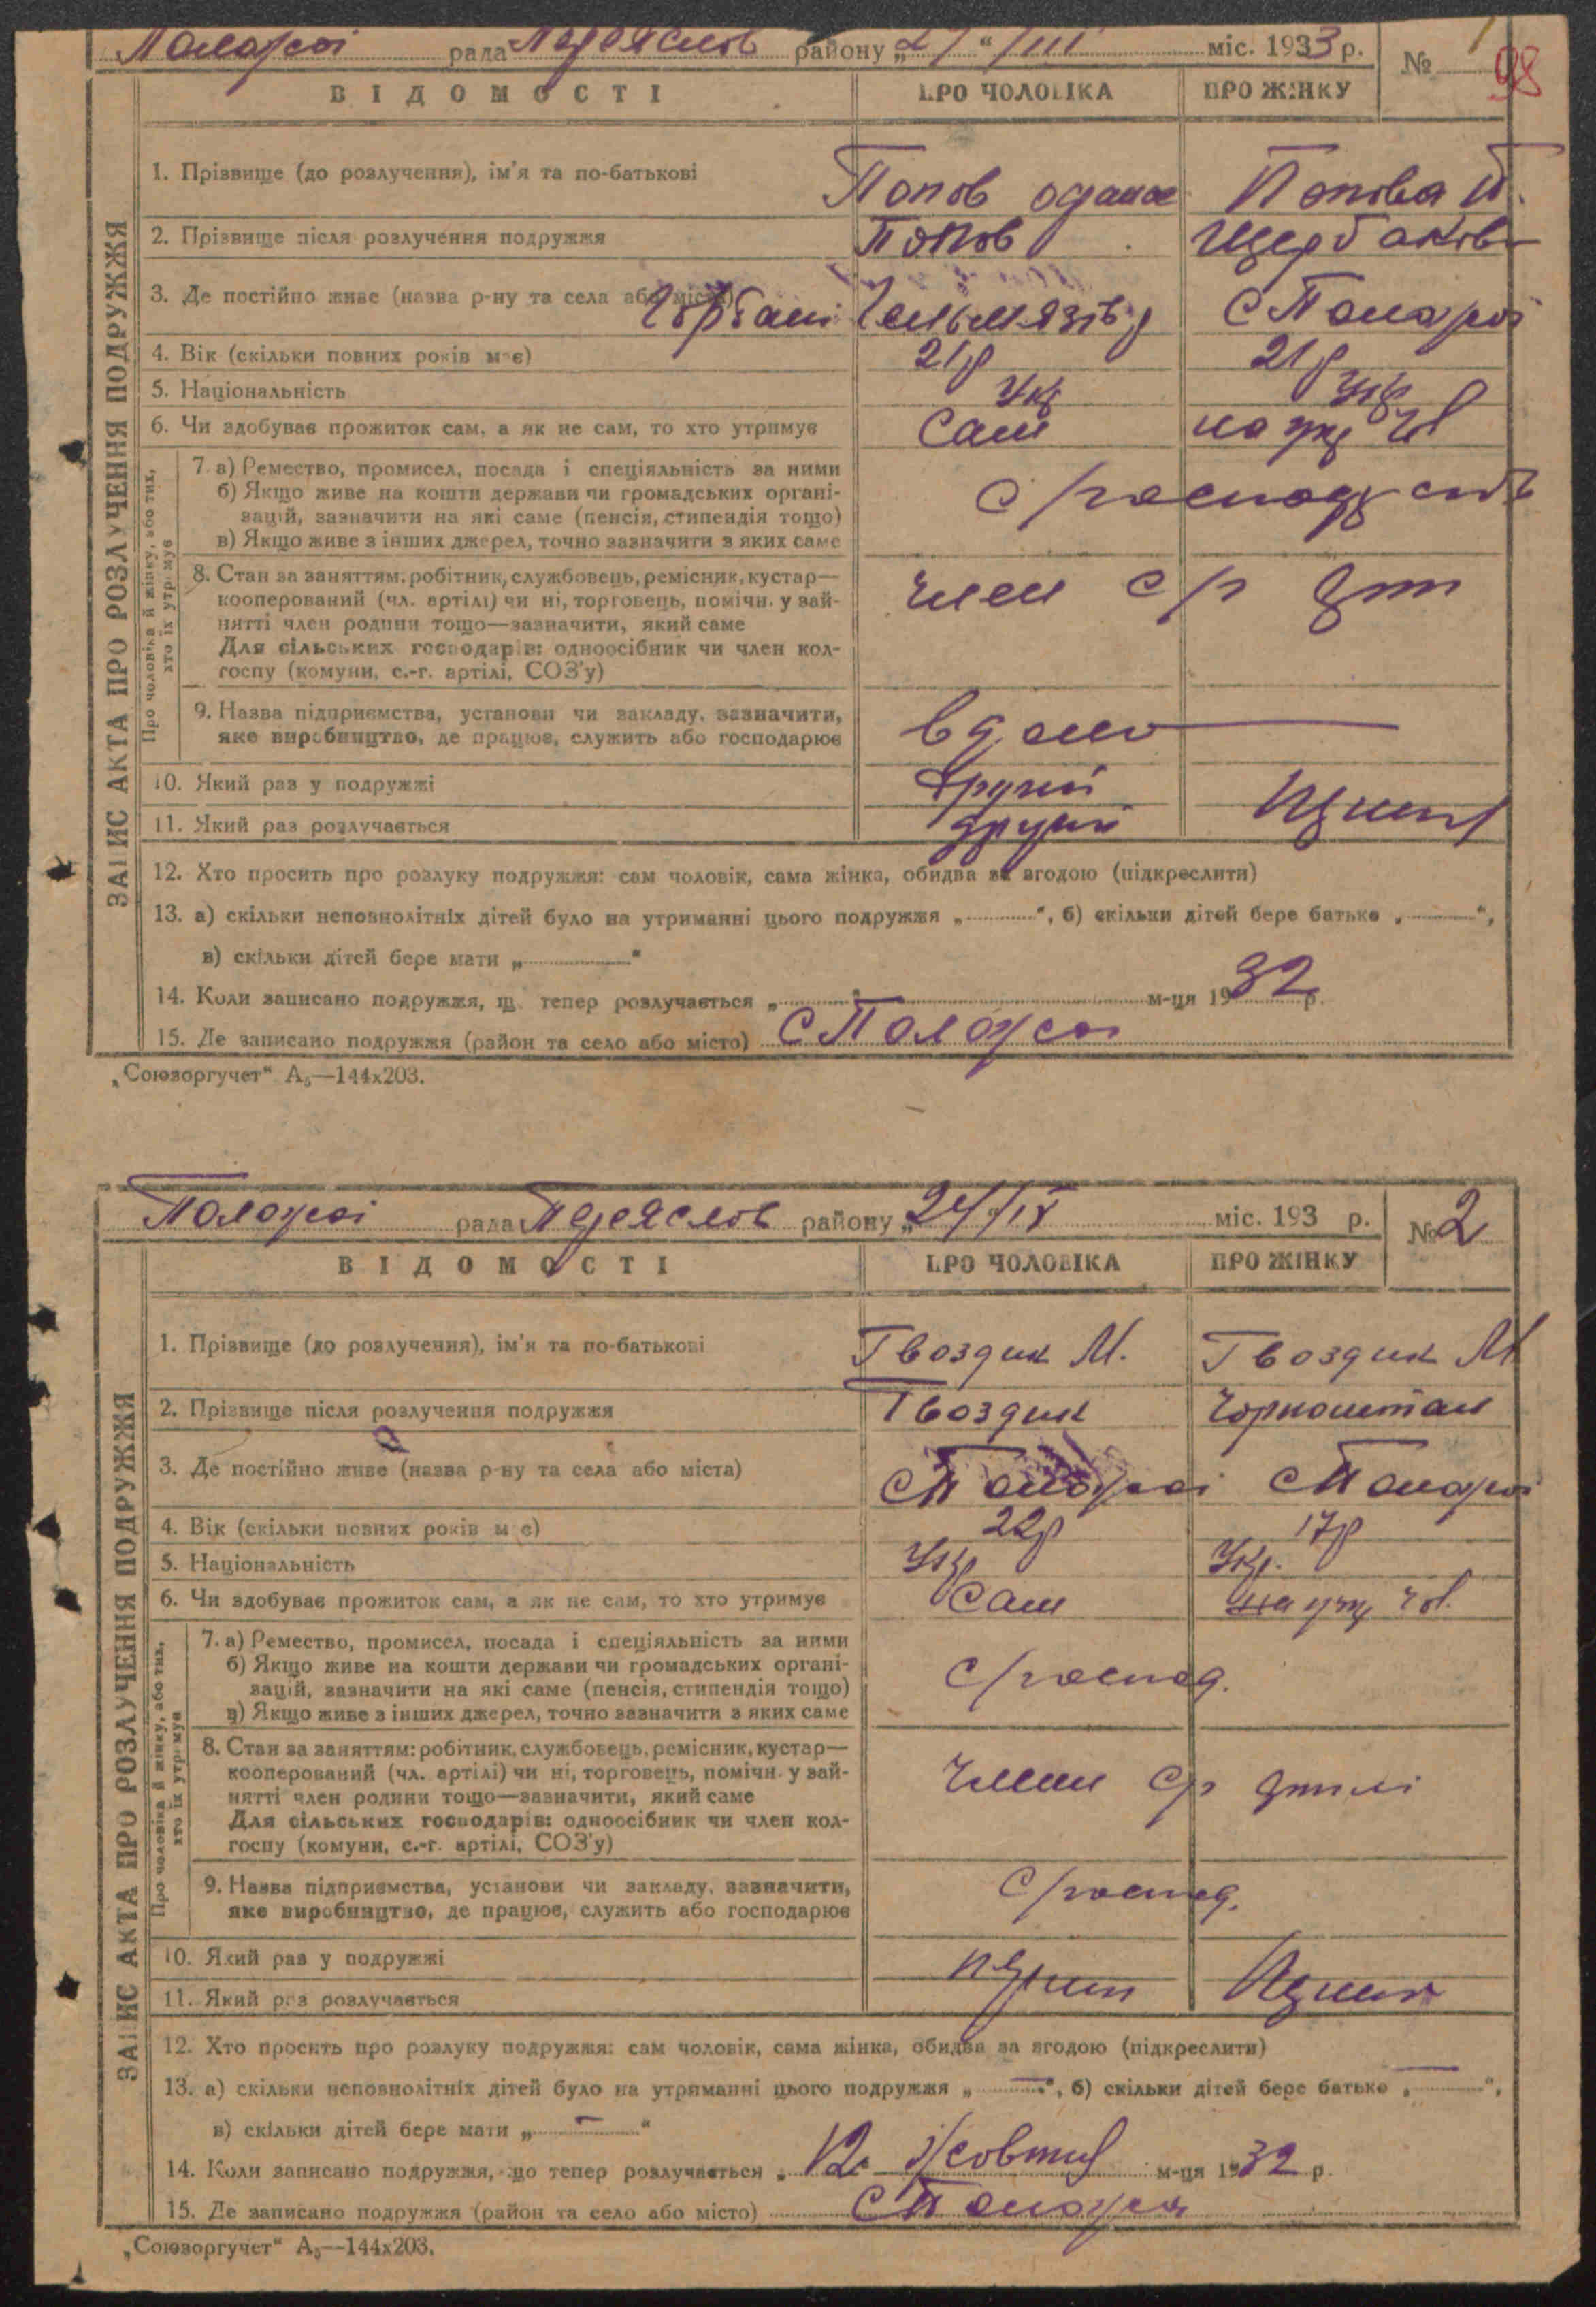 рада району „ “ /III міс. 1933 р. № 1
98
ВІДОМОСТІ ПРО ЧОЛОВІКА ПРО ЖІНКУ
ЗАПИС АКТА ПРО РОЗЛУЧЕННЯ ПОДРУЖЖЯ
1. Прізвище (до розлучення), ім'я та по-батькові Попов Попова
2. Прізвище після розлучення подружжя Попов Щербакова
3. Де постійно живе (назва р-ну та села або міста) Гельмязів р С
4. Вік (скільки повних років має) 21р 21р
5. Національність Укр Укр
6. Чи здобуває прожиток сам, а як не сам, то хто утримує Сам на утр чл
Про чоловіка й жінку, або тих,
хто їх утримує
7. а) Ремество, промисел, посада і спеціяльність за ними
б) Якщо живе на кошти держави чи громадських органі-
зацій, зазначити на які саме (пенсія, стипендія тощо)
в) Якщо живе з інших джерел, точно зазначити з яких саме
8. Стан за заняттям: робітник, службовець, ремісник, кустар—
кооперований (чл. артілі) чи ні, торговець, помічн. у зай-
нятті член родини тощо—зазначити, який саме
член с/г
Для сільських господарів: одноосібник чи член кол-
госпу (комуни, с.-г. артілі, СОЗ'у)
9. Назва підприємства, установи чи закладу, зазначити,
яке виробництво, де працює, служить або господарює
10. Який раз у подружжі другий
11. Який раз розлучається другий
12. Хто просить про розлуку подружжя: сам чоловік, сама жінка, обидва за згодою (підкреслити)
13. а) скільки неповнолітніх дітей було на утриманні цього подружжя „ “, б) скільки дітей бере батько „ “,
в) скільки дітей бере мати „ “
14. Коли записано подружжя, що тепер розлучається „ “ м-ця 1932 р.
15. Де записано подружжя (район та село або місто) С
„Союзоргучет“ А₅—144х203.
рада району „24“/IV міс. 193 р. № 2
ВІДОМОСТІ ПРО ЧОЛОВІКА ПРО ЖІНКУ
ЗАПИС АКТА ПРО РОЗЛУЧЕННЯ ПОДРУЖЖЯ
1. Прізвище (до розлучення), ім'я та по-батькові Гвоздик М. Гвоздик М
2. Прізвище після розлучення подружжя Гвоздик Чорноштан
3. Де постійно живе (назва р-ну та села або міста) с с
4. Вік (скільки повних років має) 22р 17р
5. Національність Укр Укр.
6. Чи здобуває прожиток сам, а як не сам, то хто утримує Сам на утр чол.
Про чоловіка й жінку, або тих,
хто їх утримує
7. а) Ремество, промисел, посада і спеціяльність за ними
б) Якщо живе на кошти держави чи громадських органі-
зацій, зазначити на які саме (пенсія, стипендія тощо)
с/господ.
в) Якщо живе з інших джерел, точно зазначити з яких саме
8. Стан за заняттям: робітник, службовець, ремісник, кустар—
кооперований (чл. артілі) чи ні, торговець, помічн. у зай-
нятті член родини тощо—зазначити, який саме
Член ср артілі
Для сільських господарів: одноосібник чи член кол-
госпу (комуни, с.-г. артілі, СОЗ'у)
9. Назва підприємства, установи чи закладу, зазначити, с/господ.
яке виробництво, де працює, служить або господарює
10. Який раз у подружжі
11. Який раз розлучається
12. Хто просить про розлуку подружжя: сам чоловік, сама жінка, обидва за згодою (підкреслити)
13. а) скільки неповнолітніх дітей було на утриманні цього подружжя „ — “, б) скільки дітей бере батько „ — “,
в) скільки дітей бере мати „ — “
14. Коли записано подружжя, що тепер розлучається „ 12 Жовтня м-ця 1932 р.
15. Де записано подружжя (район та село або місто) С
„Союзоргучет“ А₅—144х203.